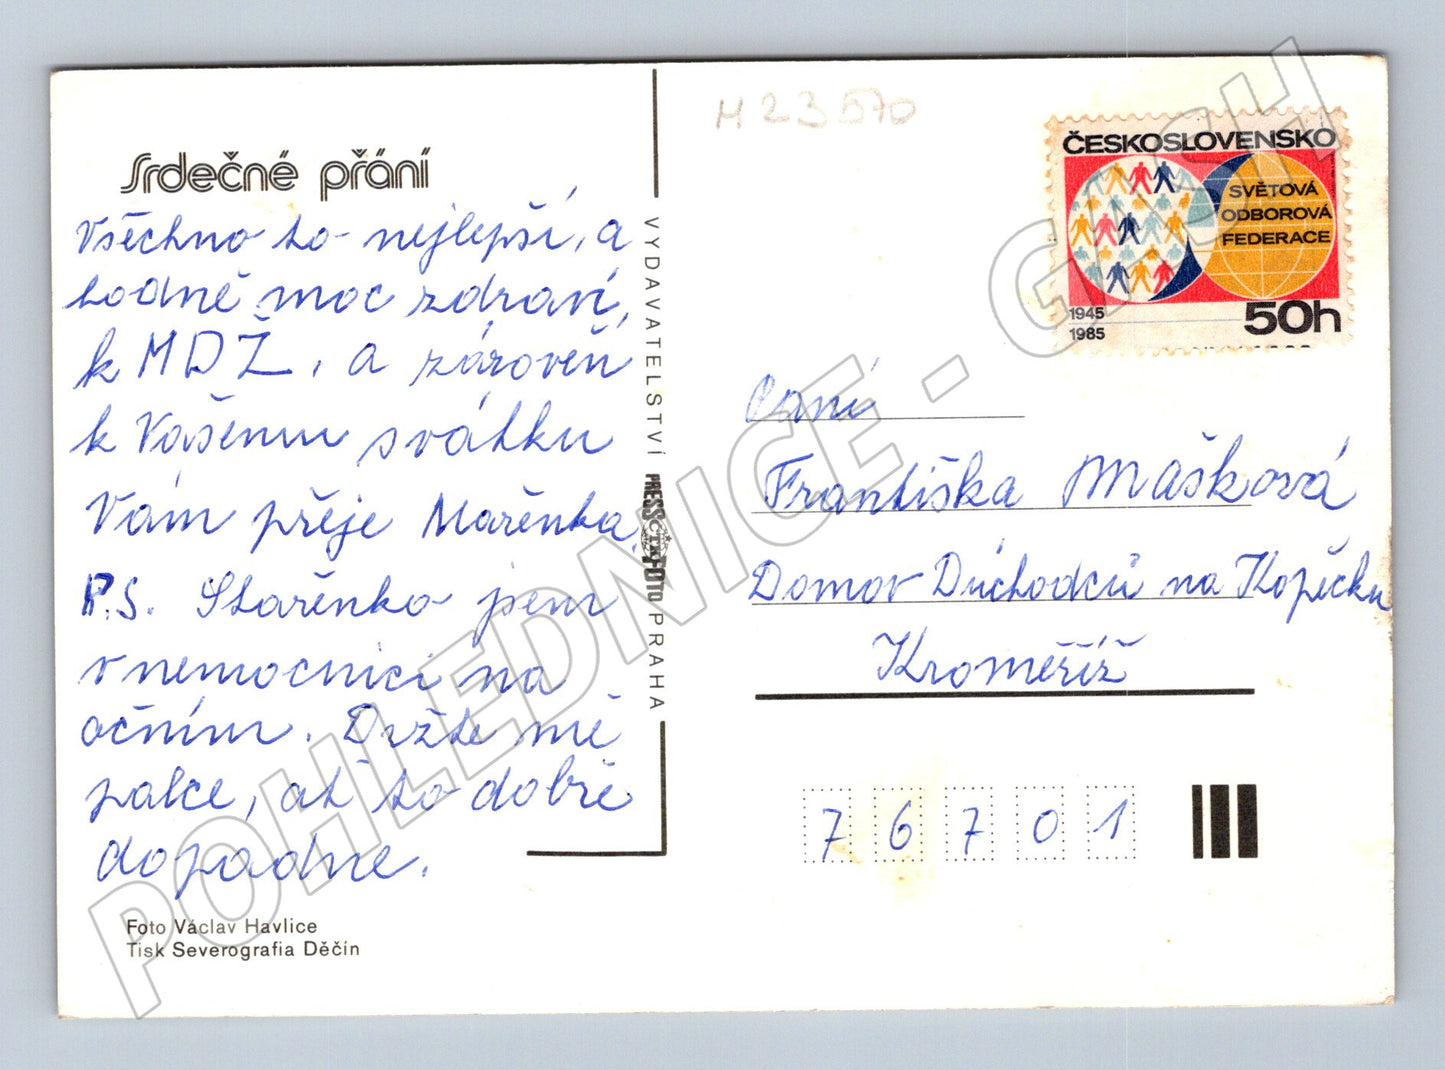 Srdečné přání
Všechno to nejlepší, a
hodně moc zdraví,
k MDŽ, a zároveň
k Vašemu svátku
Vám přeje Mařenka.
P.S. Stařenko jsem
v nemocnici na
očním. Držte mě
palce, ať to dobře
dopadne.
Foto Václav Havlice
Tisk Severografia Děčín
VYDAVATELSTVÍ PRESSFOTO PRAHA
ČTK
M 23570
ČESKOSLOVENSKO
SVĚTOVÁ
ODBOROVÁ
FEDERACE
1945
1985
50h
Paní
Františka Mášková
Domov Důchodců na Kopěčku
Kroměříž
76701
POHLEDNICE - GASH